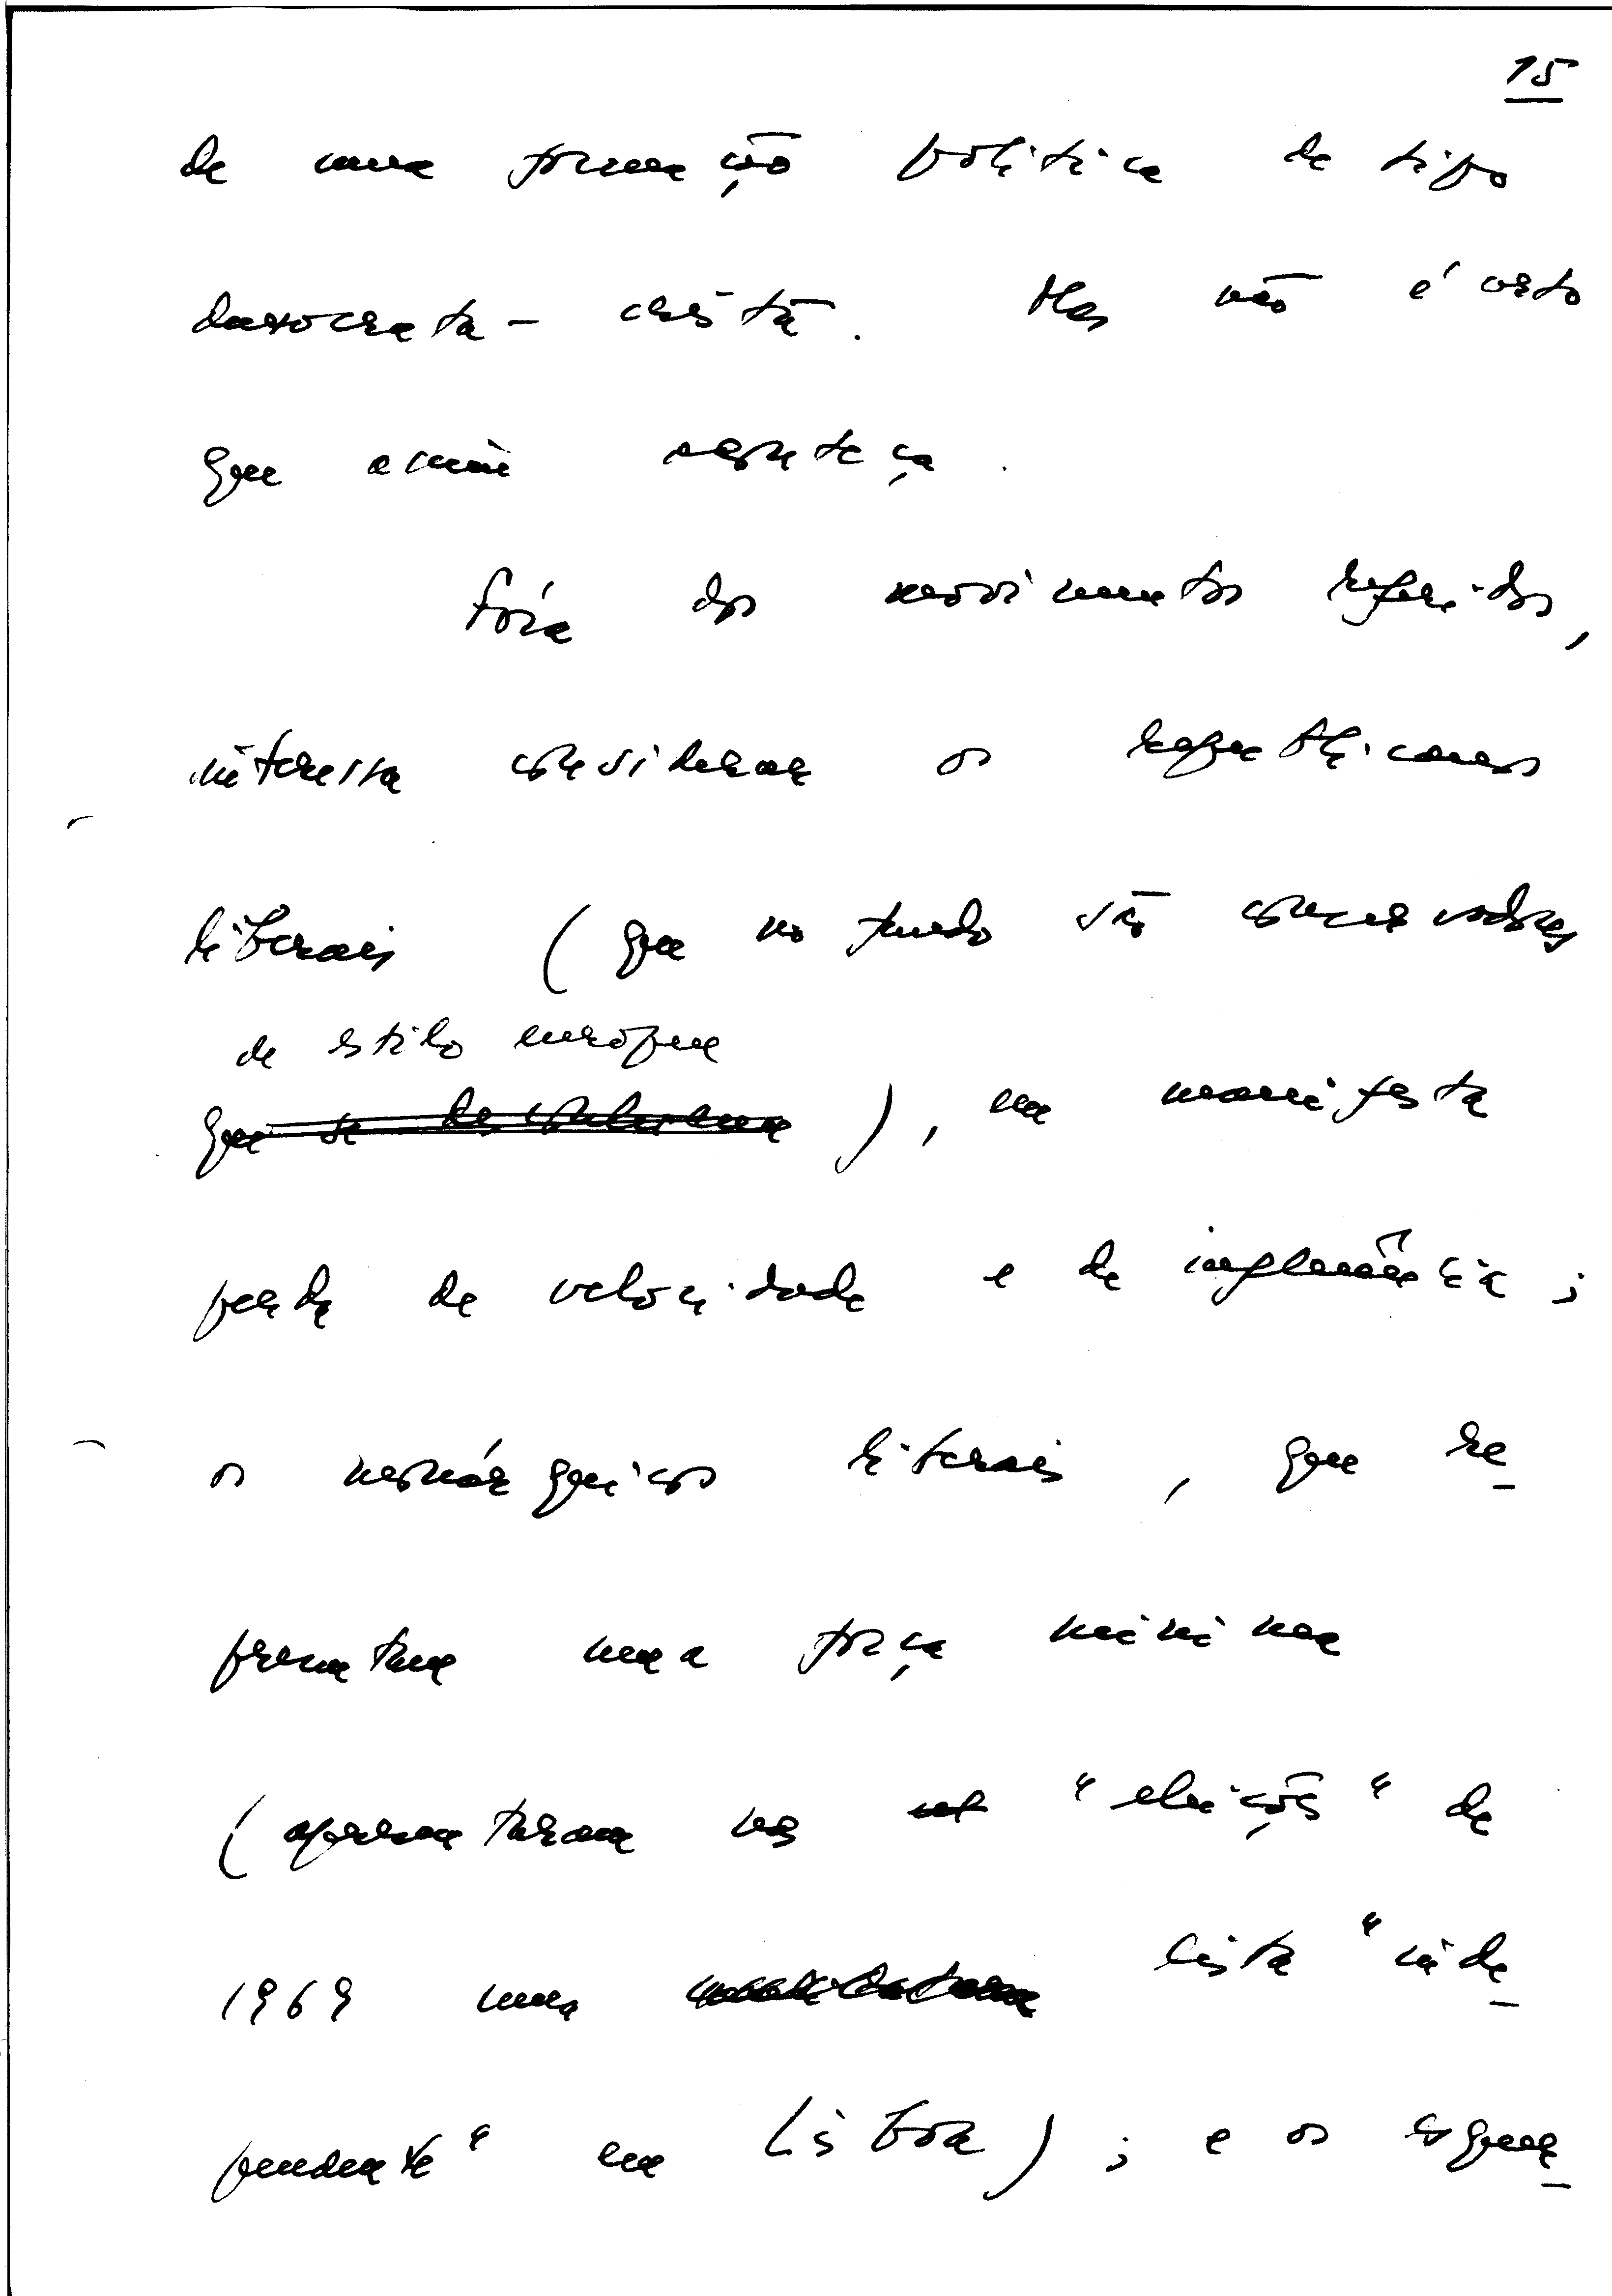 15
de uma formação política de tipo
democrata-cristã. Mas não é certo
que assim aconteça.
Fóra dos movimentos referidos,
interessa considerar os republicanos
liberais (que no fundo são conservadores
de estilo europeu
que se desconhecem ), em manifesta
perda de velocidade e de influência;
os monárquicos liberais, que re-
presentam uma força mínima
(apresentaram nas "eleições" de
1969 uma lista "inde-
pendente" em Lisboa); e os esquer-